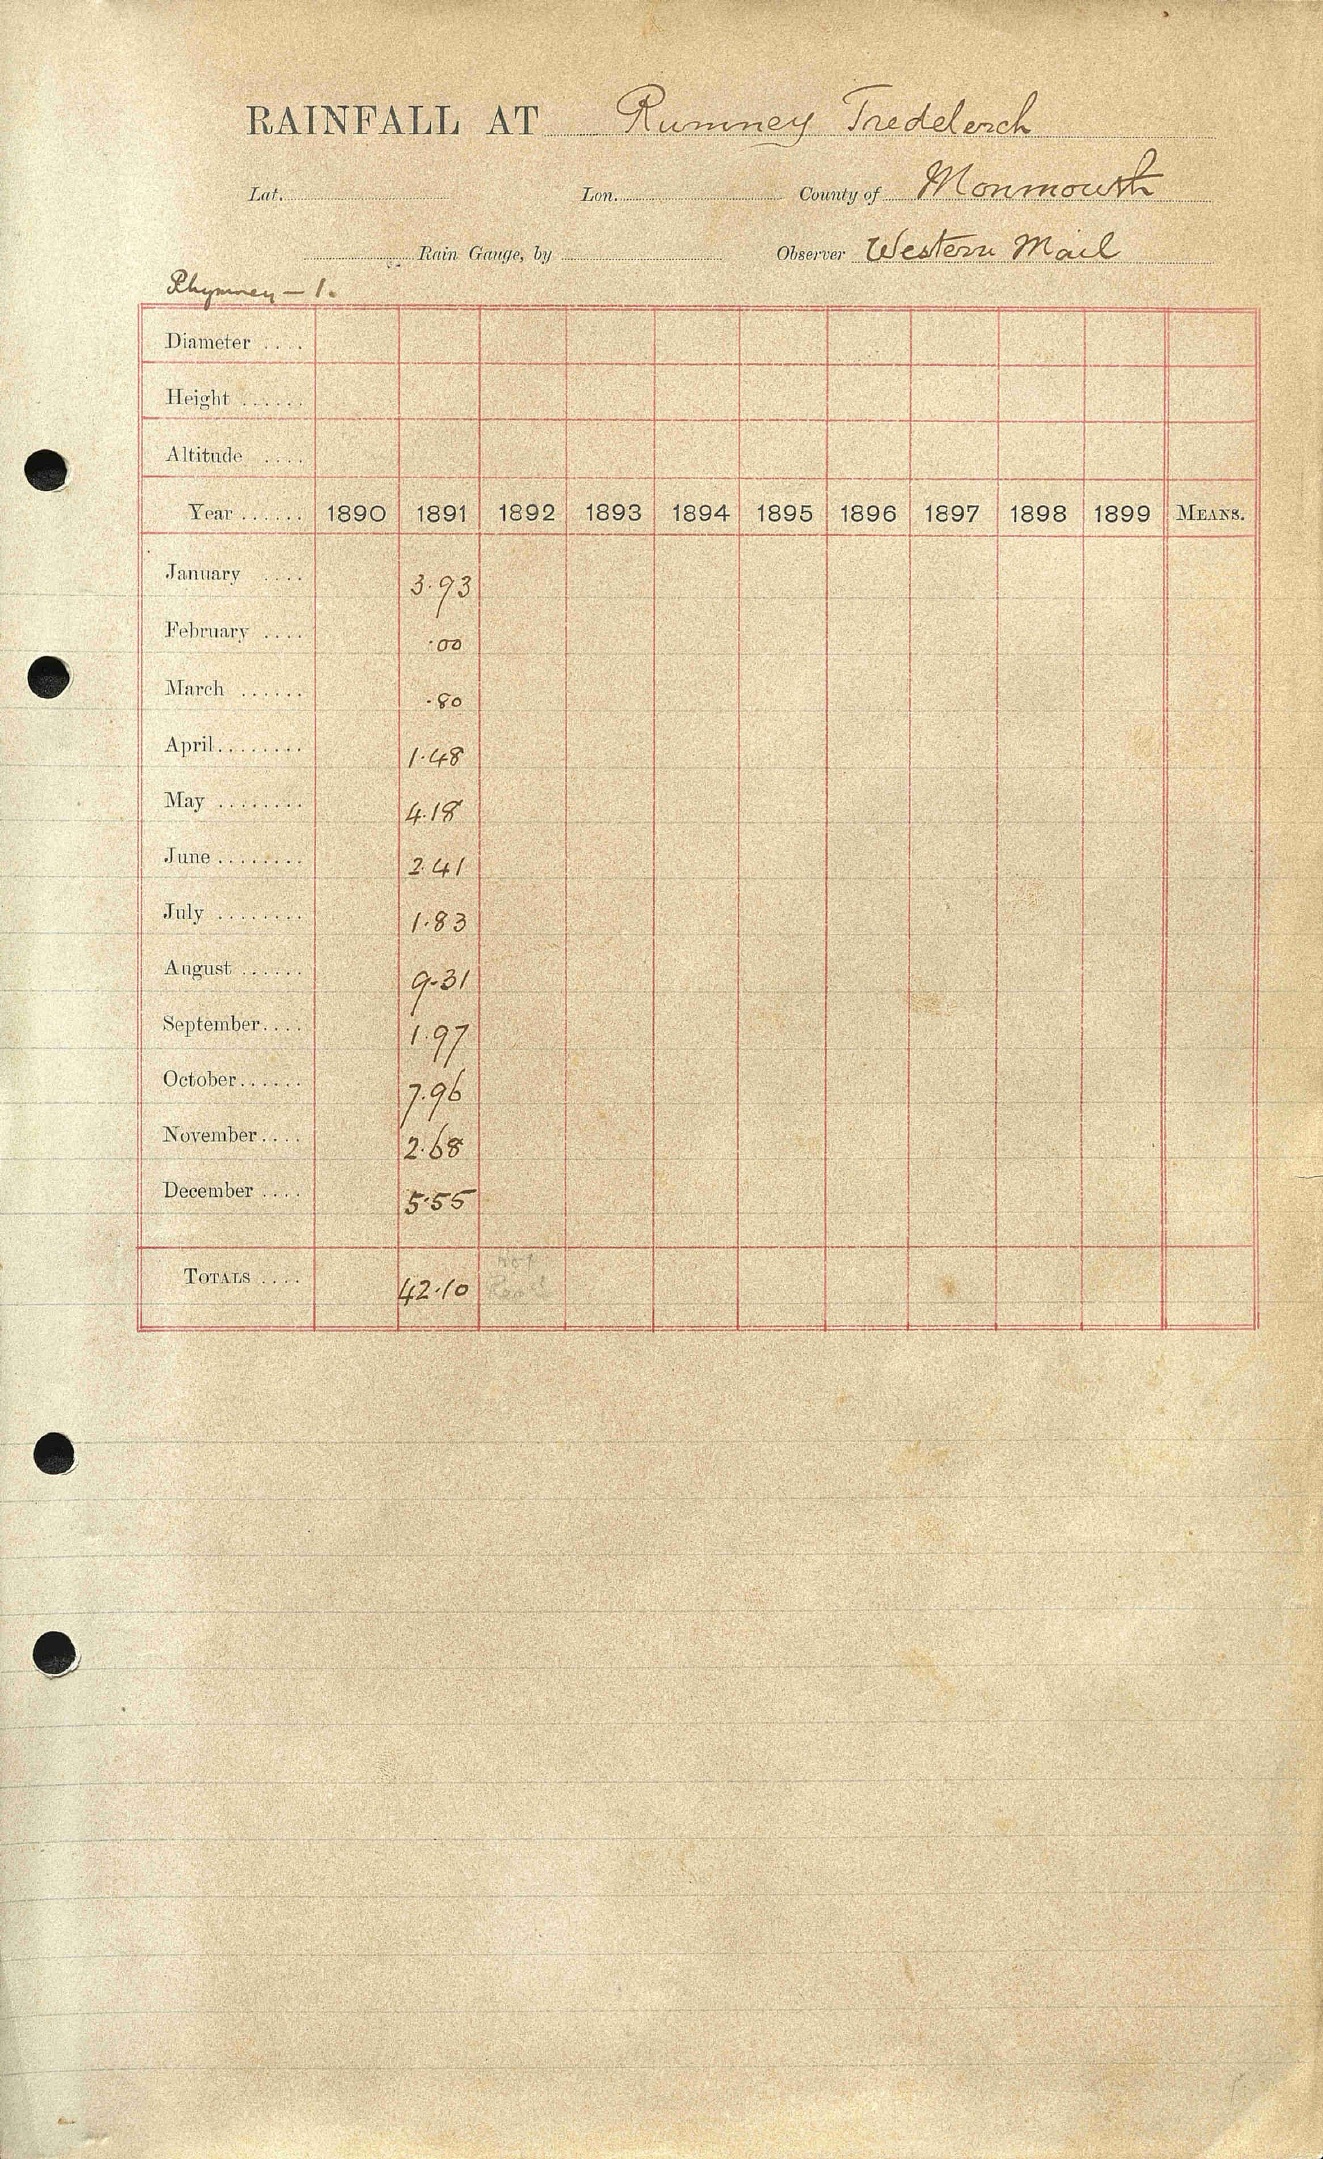 RAINFALL AT Rumney Tredelerch
Lat. Lon. County of Monmouth
Rain Gauge, by Observer Western Mail
Rhymney — 1.
Diameter ....
Height ......
Altitude ....
Year ...... 1890 1891 1892 1893 1894 1895 1896 1897 1898 1899 MEANS.
January .... 3.93
February .... .00
March ...... .80
April........ 1.48
May ........ 4.18
June ........ 2.41
July ........ 1.83
August ...... 9.31
September.... 1.97
October...... 7.96
November.... 2.68
December .... 5.55
TOTALS .... 42.10 not